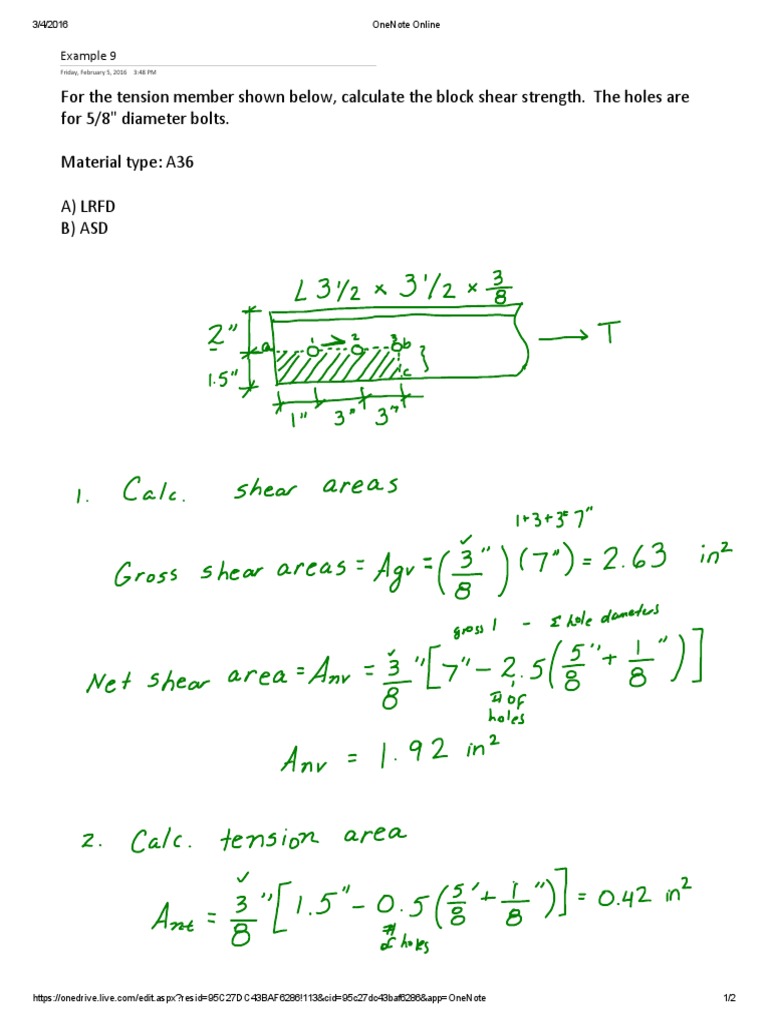 3/4/2016 OneNote Online
Example 9
Friday, February 5, 2016 3:48 PM
For the tension member shown below, calculate the block shear strength. The holes are
for 5/8" diameter bolts.
Material type: A36
A) LRFD
B) ASD
L 3 1/2 × 3 1/2 × 3/8
2"
1.5"
a 1 2 3 b
c
T
1" 3" 3"
1. Calc. shear areas
1+3+3=7"
Gross shear areas = Agv = (3/8") (7") = 2.63 in²
gross l - Σ hole dameters
Net shear area = Anv = 3/8" [7" - 2.5 (5/8" + 1/8")]
# of
holes
Anv = 1.92 in²
2. Calc. tension area
Ant = 3/8" [1.5" - 0.5 (5/8" + 1/8")] = 0.42 in²
#
of holes
https://onedrive.live.com/edit.aspx?resid=95C27DC43BAF6286!113&cid=95c27dc43baf6286&app=OneNote 1/2